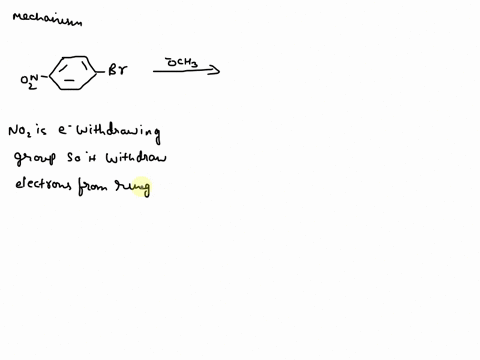 Mechanism
O2N Br ŌCH3
NO2 is e- withdrawing
group so it withdraw
electrons from ring